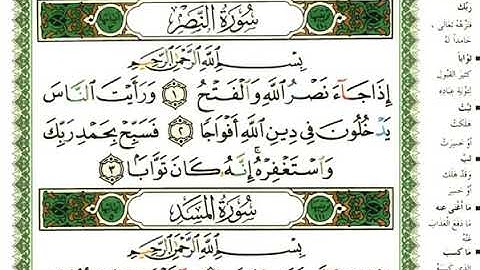 سُورَةُ النَّصْرِ
بِسْمِ اللَّهِ الرَّحْمَنِ الرَّحِيمِ
إِذَا جَآءَ نَصْرُ اللَّهِ وَالْفَتْحُ ١ وَرَأَيْتَ النَّاسَ
يَدْخُلُونَ فِي دِينِ اللَّهِ أَفْوَاجًا ٢ فَسَبِّحْ بِحَمْدِ رَبِّكَ
وَاسْتَغْفِرْهُ إِنَّهُ كَانَ تَوَّابًا ٣
سُورَةُ الْمَسَدِ
بِسْمِ اللَّهِ الرَّحْمَنِ الرَّحِيمِ
رَبِّكَ
فنزّهه تعالى،
حامدًا له
توّابًا
كثير القبول
لتوبة عباده
تبّت
هلكت
أو خسرت
تبّ
وقد هلك
أو خسر
ما أغنى عنه
ما دفع العذاب
عنه
ما كسب
الذي كسبه